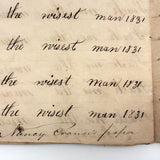 the wisest man 1831
the wisest man 1831
the wisest man 1831
the wisest man 1831
Nancy